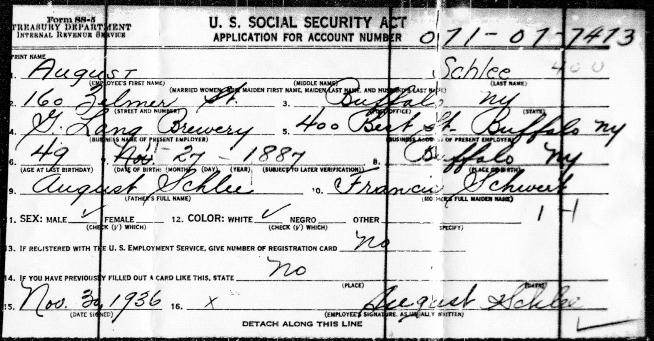 Form SS-5
TREASURY DEPARTMENT
INTERNAL REVENUE SERVICE
U. S. SOCIAL SECURITY ACT
APPLICATION FOR ACCOUNT NUMBER
071-07-7473
PRINT NAME
1. August Schlee 400
(EMPLOYEE'S FIRST NAME) (MIDDLE NAME) (LAST NAME)
(MARRIED WOMEN, GIVE MAIDEN FIRST NAME, MAIDEN LAST NAME, AND HUSBAND'S LAST NAME)
2. 160 Zelmer St. 3. Buffalo NY
(STREET AND NUMBER) (POST OFFICE) (STATE)
4. G. Lang Brewery 5. 400 Best St. Buffalo NY
(BUSINESS NAME OF PRESENT EMPLOYER) (BUSINESS ADDRESS OF PRESENT EMPLOYER)
6. 49 7. Nov - 27 - 1887 8. Buffalo NY
(AGE AT LAST BIRTHDAY) (DATE OF BIRTH: (MONTH) (DAY) (YEAR) (SUBJECT TO LATER VERIFICATION)) (PLACE OF BIRTH)
9. August Schlee 10. Francis Schwert
(FATHER'S FULL NAME) (MOTHER'S FULL MAIDEN NAME)
11. SEX: MALE ✓ FEMALE 12. COLOR: WHITE ✓ NEGRO OTHER 1-1
(CHECK (√) WHICH) (CHECK (√) WHICH) (SPECIFY)
13. IF REGISTERED WITH THE U. S. EMPLOYMENT SERVICE, GIVE NUMBER OF REGISTRATION CARD No
14. IF YOU HAVE PREVIOUSLY FILLED OUT A CARD LIKE THIS, STATE No
(PLACE) (DATE)
15. Nov. 30, 1936 16. X August Schlee
(DATE SIGNED) (EMPLOYEE'S SIGNATURE, AS USUALLY WRITTEN)
DETACH ALONG THIS LINE